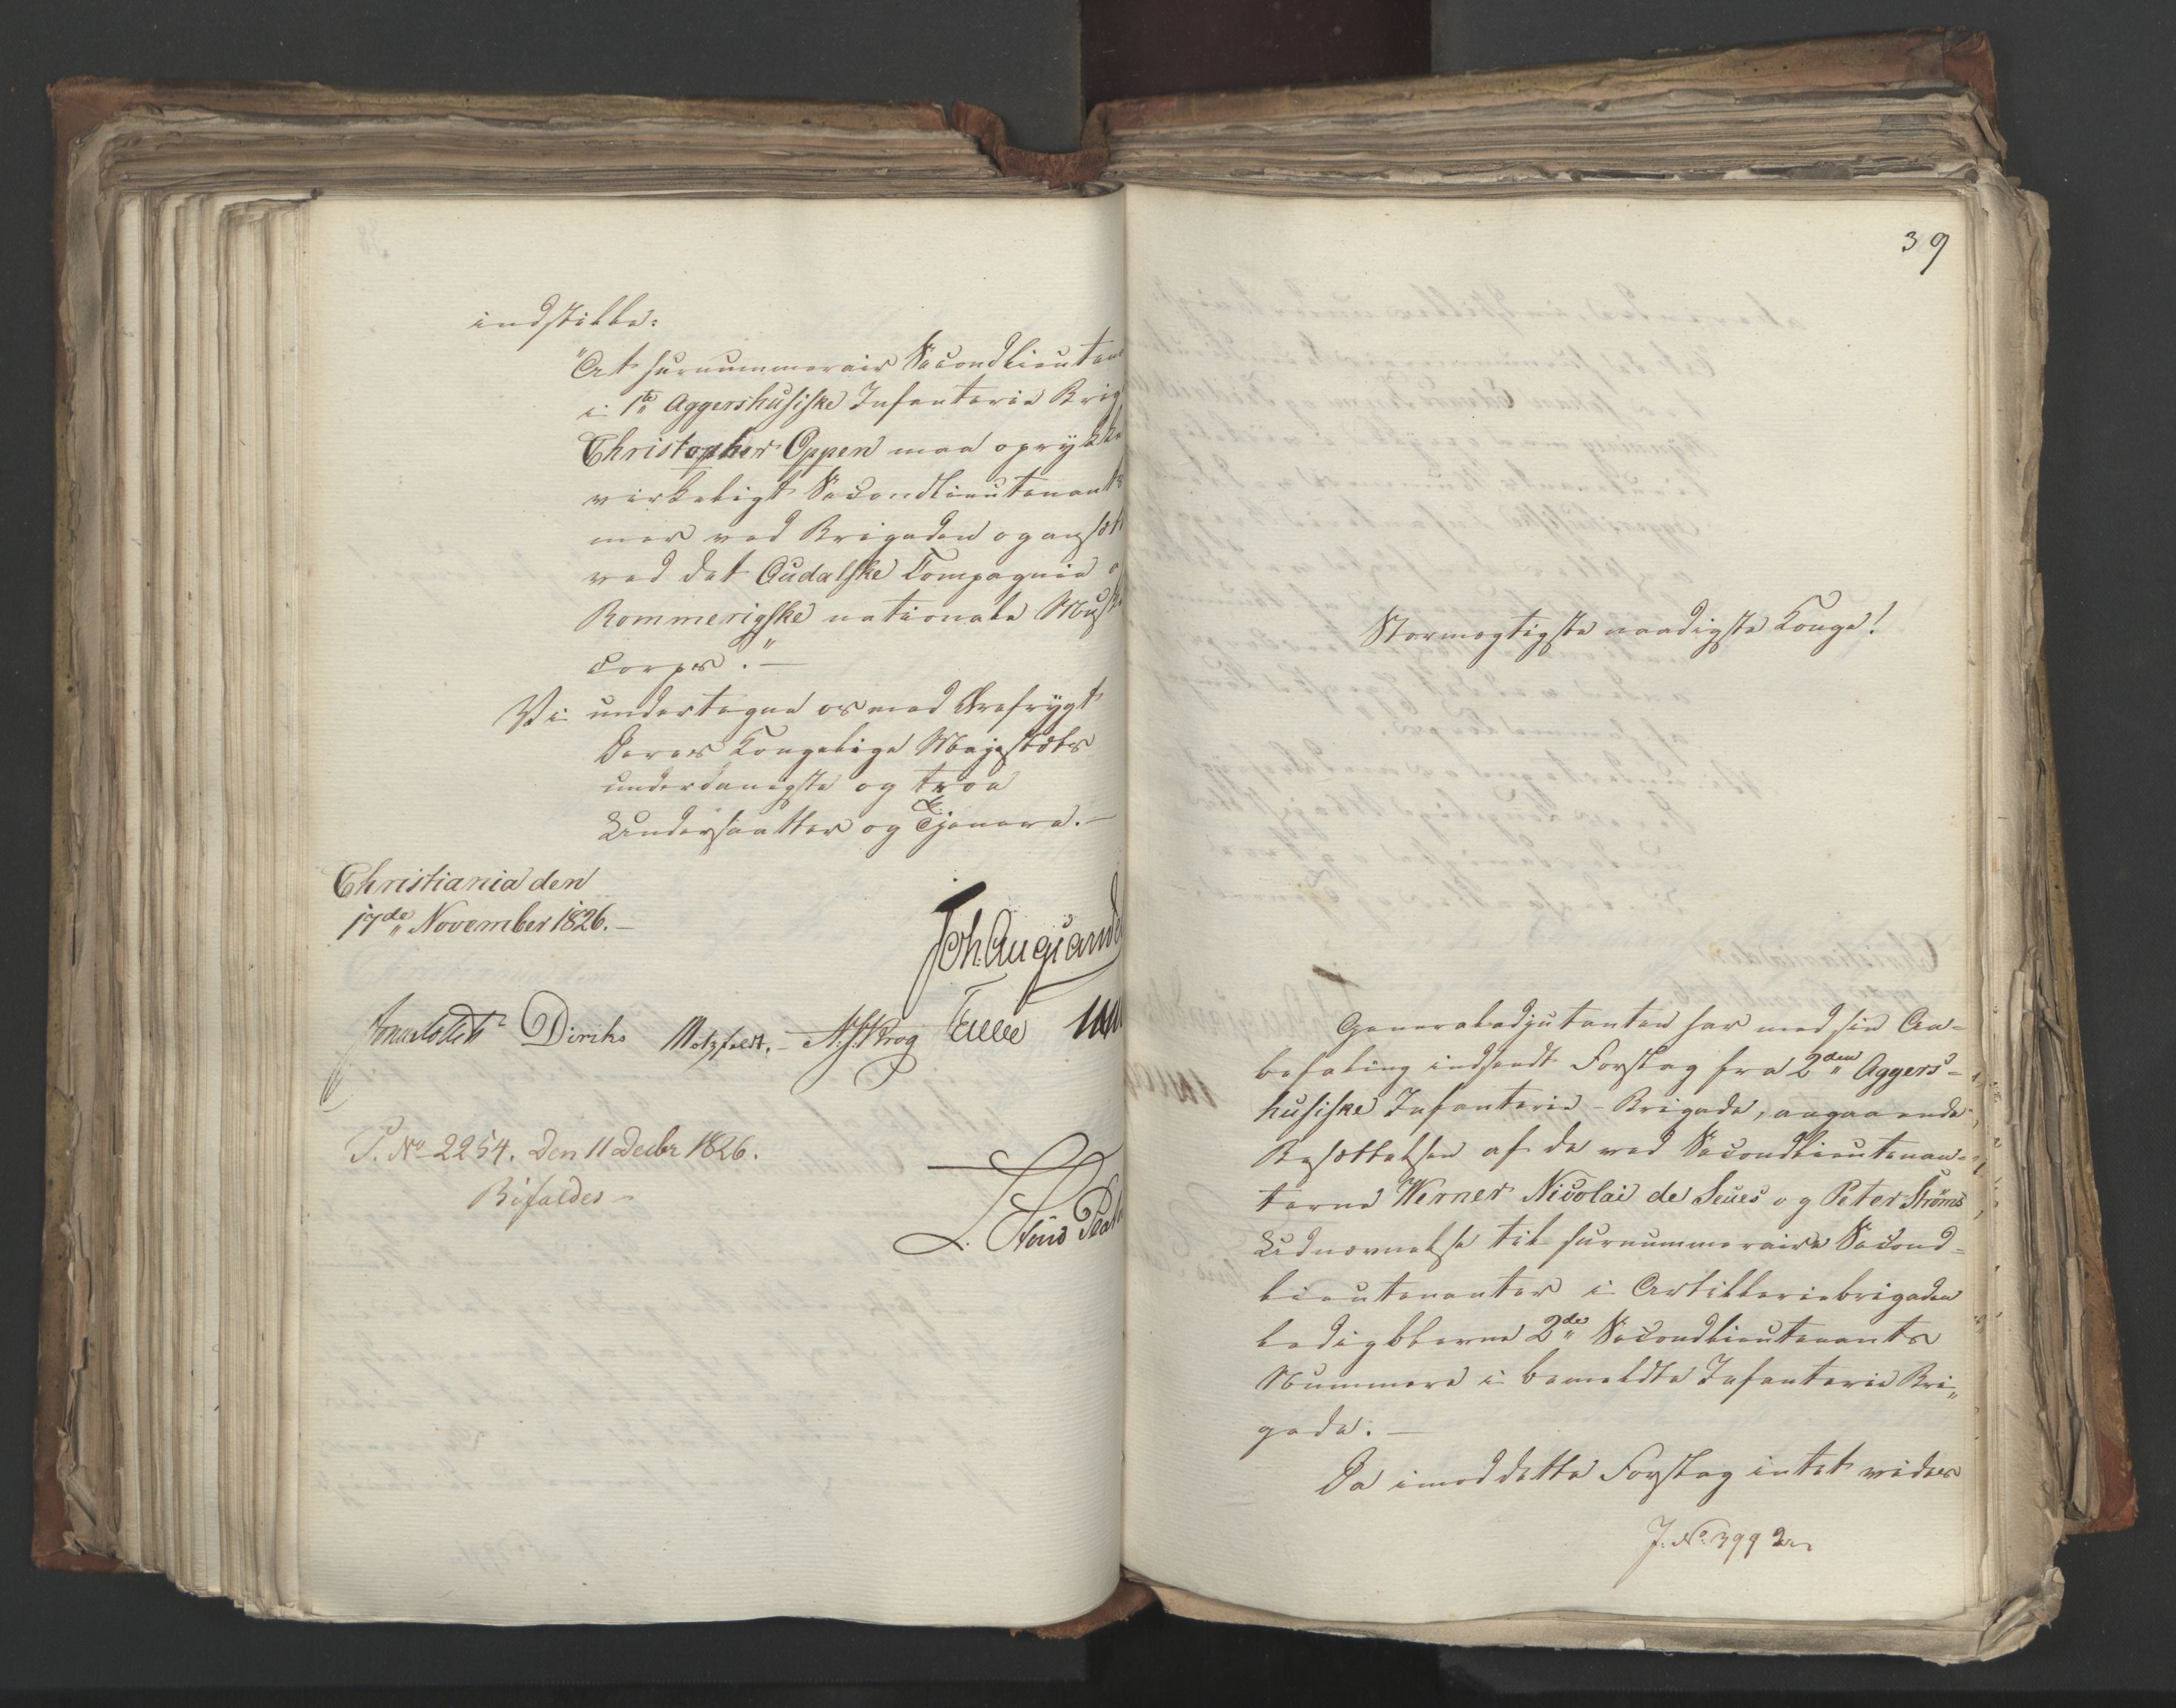 indstille:
"At surnummerair Secondlieuten
i 1ste Aggershusiske Infanterie Brig
Christopher Oppen maa oprykke
virkeligt Secondlieutenants
mer ved Brigaden og ansætt
ved det Oudalske Compagnie
Rommerigske nationale Musk
Corps." —
Vi undertegne os med Ærefrygt
Deres Kongelige Majestæts
underdanigste og troe
Undersaatter og Tjenere. —
Christiania den
17de November 1826. —
Joh. Aug. Sand
Jonas Collett Diriks Motzfeldt. N. J. Krog
P. No 2254. Den 11 Decbr 1826.
Bifaldes –
39
Stormægtigste naadigste Konge!
Generaladjutanten har med sin An-
befaling indsendt Forslag fra 2den Aggers-
husiske Infanterie-Brigade, angaaende
Besættelsen af de ved Secondlieutenan-
terne Werner Nicolai de Seues og Peter Strøms
Udnævnelse til surnummeraire Second-
lieutenanter i Artilleriebrigaden
ledigblevne 2de Secondlieutenants
Nummere i bemeldte Infanterie Bri-
gade. —
Da imod dette Forslag intet videre
J. No. 3992